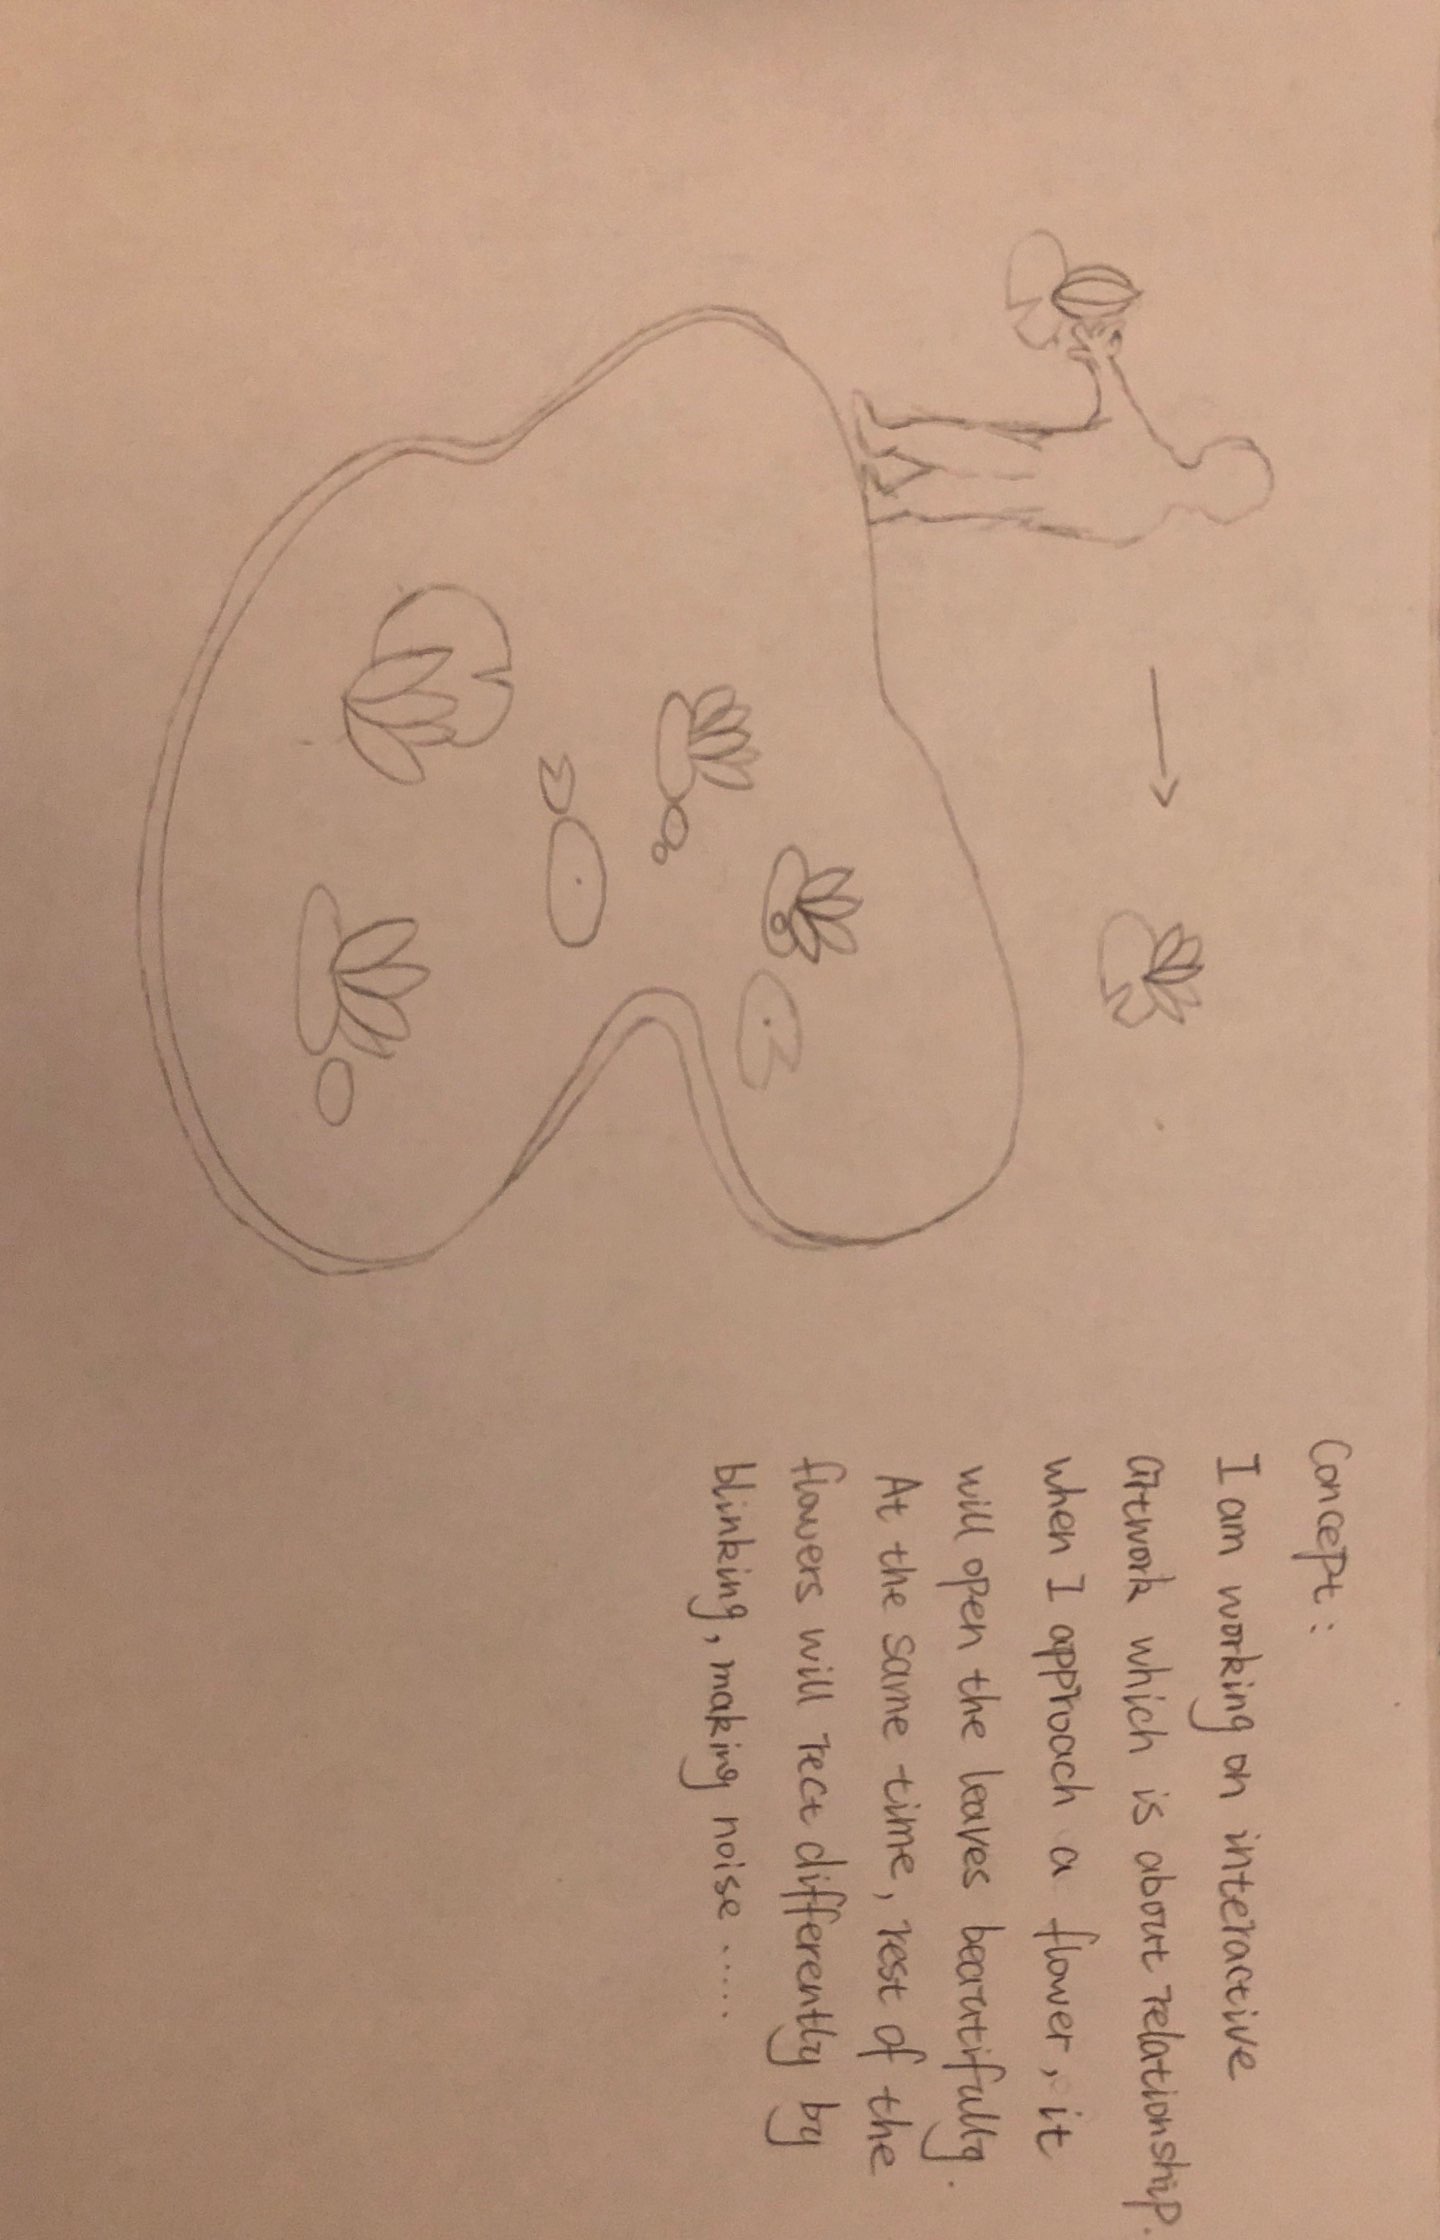 Concept:
I am working on interactive
artwork which is about relationship.
when I approach a flower, it
will open the leaves beautifully.
At the same time, rest of the
flowers will rect differently by
blinking, making noise .....